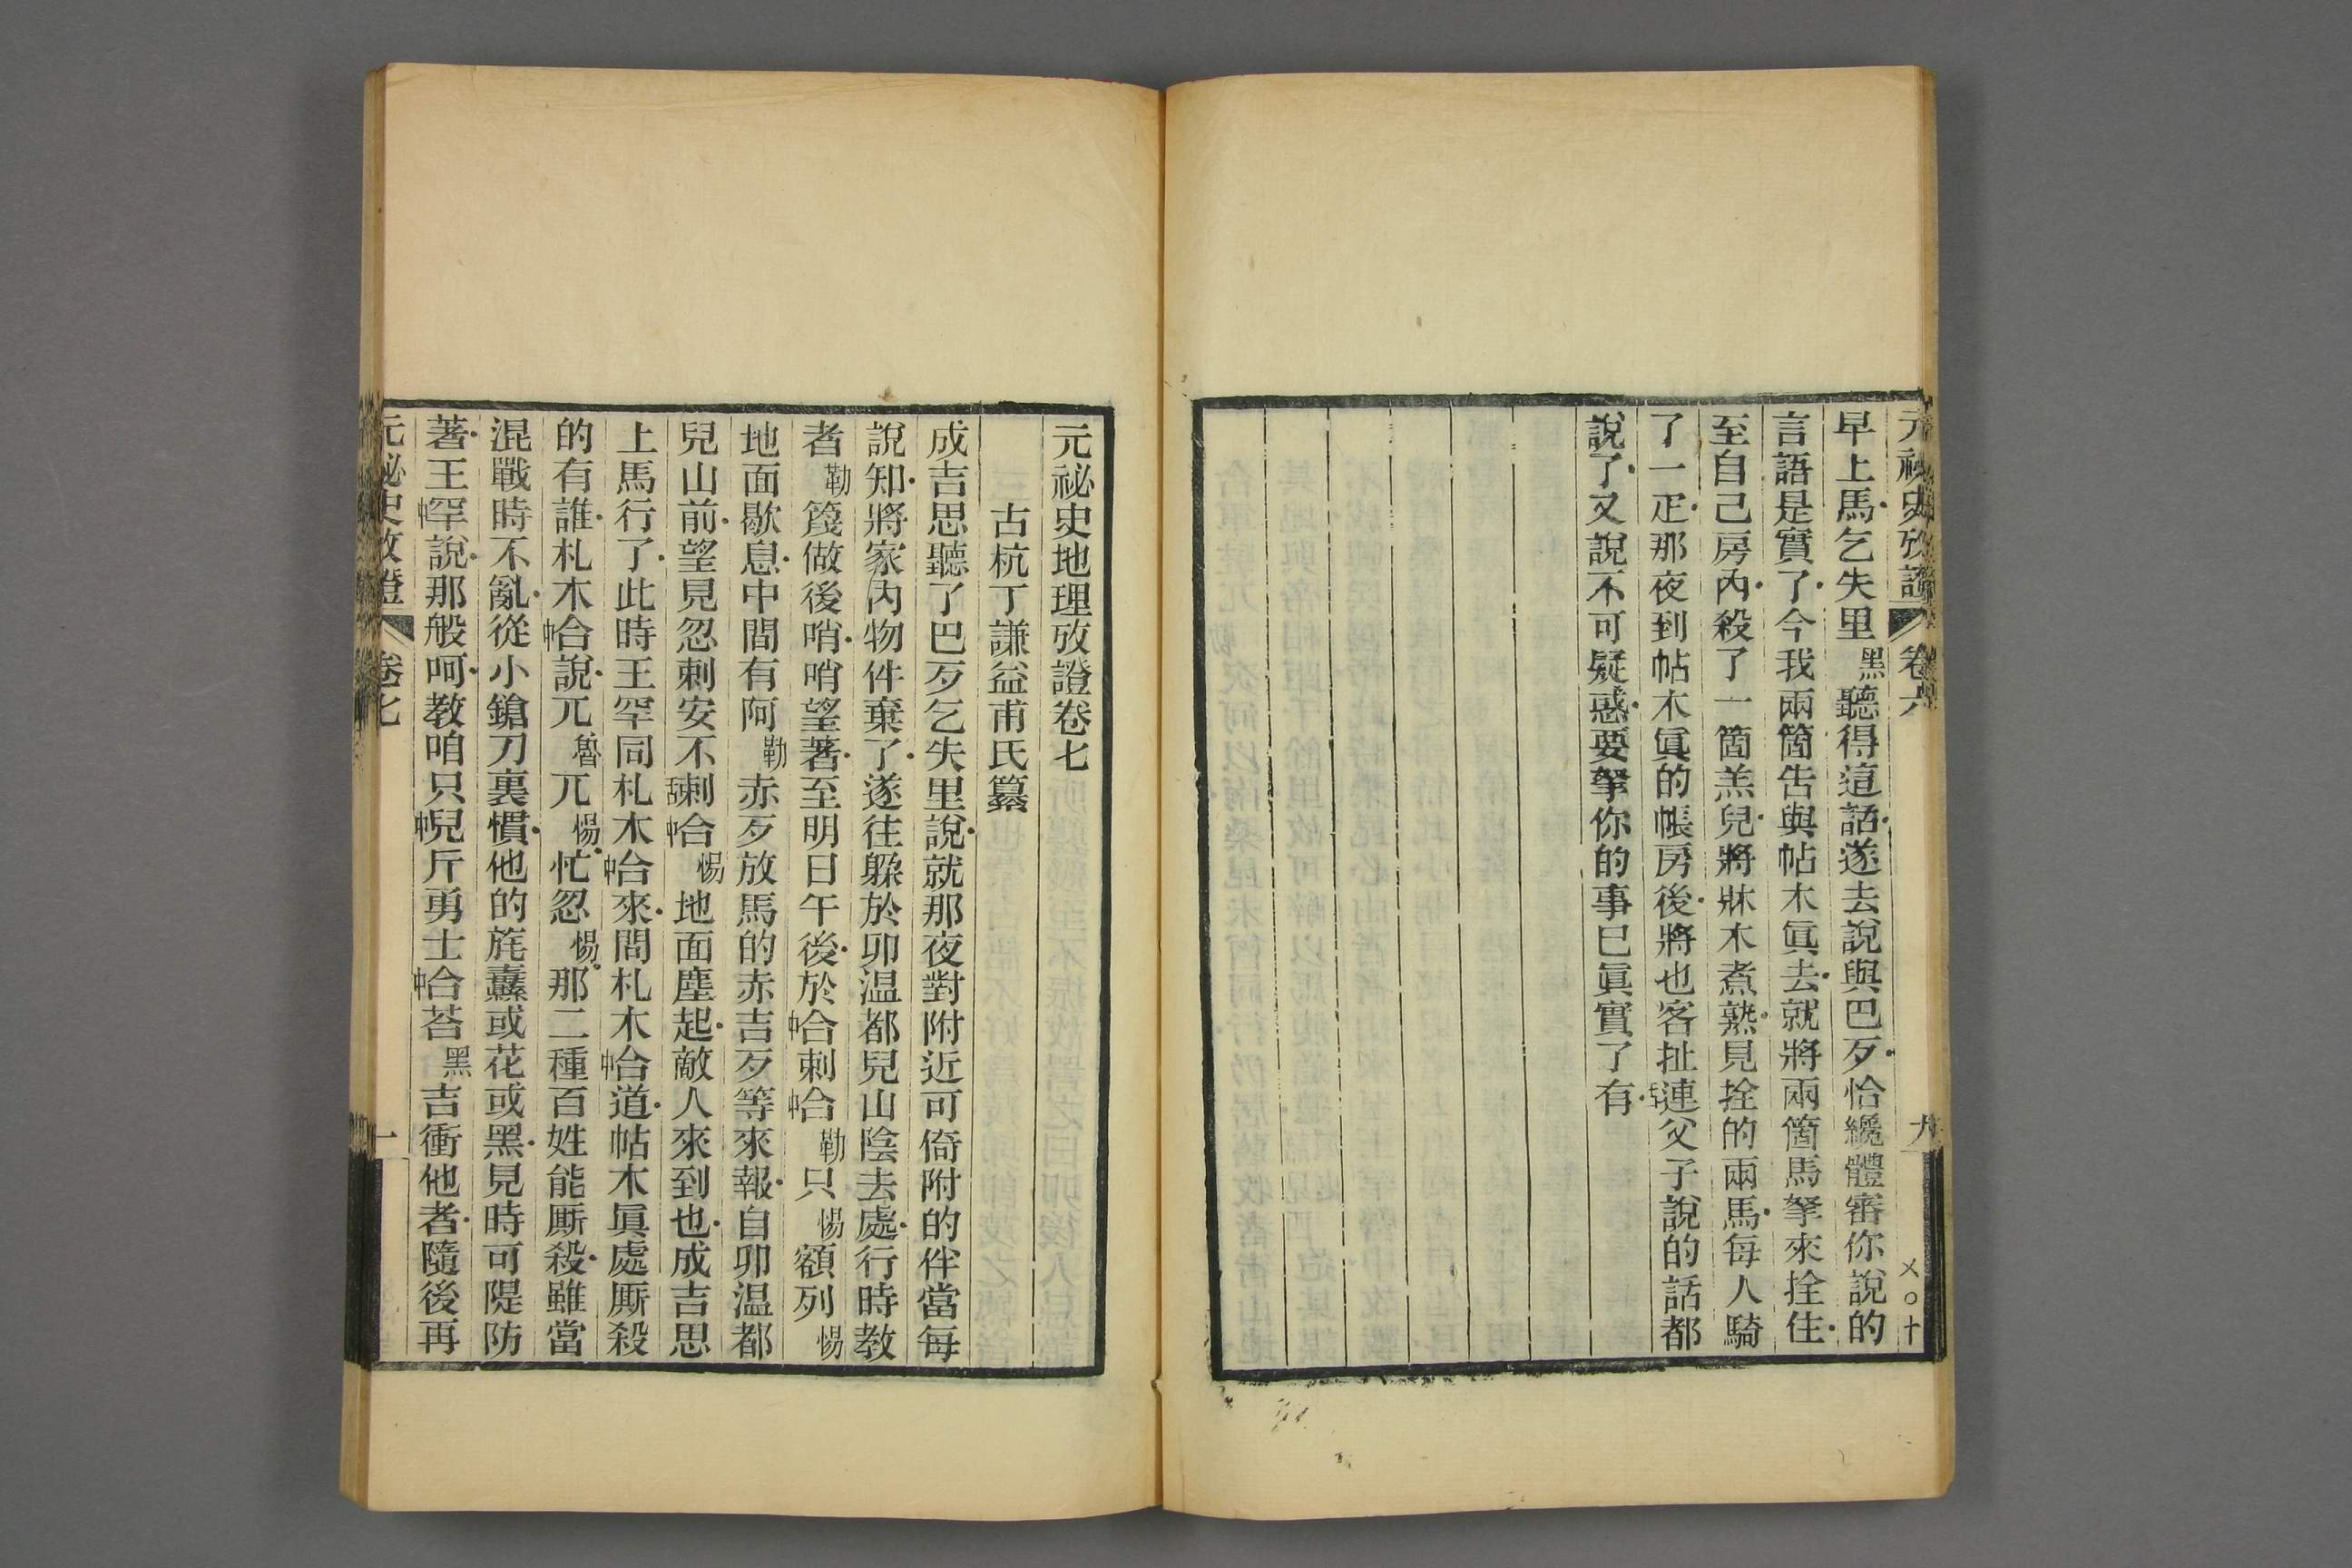 元祕史攷證 卷六 九
早上馬乞失里黑聽得這話遂去說與巴歹恰纔體審你說的
言語是實了今我兩箇告與帖木眞去就將兩箇馬拏來拴住
至自己房內殺了一箇羔兒將牀木煮熟見拴的兩馬每人騎
了一疋那夜到帖木眞的帳房後將也客扯連父子說的話都
說了又說不可疑惑要拏你的事已眞實了有
元祕史地理攷證卷七
古杭丁謙益甫氏纂
成吉思聽了巴歹乞失里說就那夜對附近可倚附的伴當每
說知將家內物件棄了遂往躲於卯温都兒山陰去處行時教
者勒篾做後哨哨望著至明日午後於中合剌中合勒只惕額列惕
地面歇息中間有阿勒赤歹放馬的赤吉歹等來報自卯温都
兒山前望見忽剌安不舌剌中合惕地面塵起敵人來到也成吉思
上馬行了此時王罕同札木中合來問札木中合道帖木眞處厮殺
的有誰札木中合說兀魯兀惕忙忽惕那二種百姓能厮殺雖當
混戰時不亂從小鎗刀裏慣他的旄纛或花或黑見時可隄防
著王中罕說那般呵教咱只中兒斤勇士中合荅黑吉衝他者隨後再
元祕史攷證 卷七 一